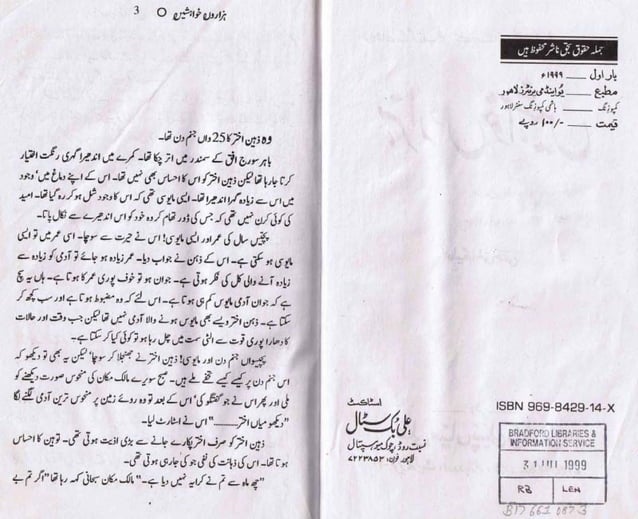 ہزاروں خواہشیں O 3
وہ ذہین اختر کا 25 واں جنم دن تھا۔
باہر سورج افق کے سمندر میں اتر چکا تھا۔ کمرے میں اندھیرا گہری رنگت اختیار
کرتا جا رہا تھا لیکن ذہین اختر کو اس کا احساس بھی نہیں تھا۔ اس کے اپنے دماغ میں' وجود
میں اس سے زیادہ گہرا اندھیرا تھا۔ ایسی مایوسی تھی کہ اس کا وجود شل ہو کر رہ گیا تھا۔ امید
کی کوئی کرن نہیں تھی کہ جس کی ڈور تھام کر وہ خود کو اس اندھیرے سے نکال پاتا۔
پچیس سال کی عمر اور ایسی مایوسی! اس نے حیرت سے سوچا۔ اسی عمر میں تو ایسی
مایوسی ہو سکتی ہے۔ اس کے ذہن نے جواب دیا۔ عمر زیادہ ہو جائے تو آدمی کو زیادہ سے
زیادہ آنے والی کل کی فکر ہوتی ہے۔ جوان ہو تو خوف پوری عمر کا ہوتا ہے۔ ہاں یہ سچ
ہے کہ جوان آدمی مایوس کم ہی ہوتا ہے۔ اس لئے کہ وہ مضبوط ہوتا ہے اور سب کچھ کر
سکتا ہے۔ ذہین اختر ویسے بھی مایوس ہونے والا آدمی نہیں تھا لیکن جب وقت اور حالات
کا دھارا پوری قوت سے الٹی سمت میں چل رہا ہو تو کوئی کیا کر سکتا ہے۔
پچیسواں جنم دن اور مایوسی! ذہین اختر نے جھنجلا کر سوچا' لیکن یہ بھی تو دیکھو کہ
اس جنم دن پر کیسے کیسے تحفے ملے ہیں۔ صبح سویرے مالک مکان کی منحوس صورت دیکھنے کو
ملی اور پھر اس نے جو گفتگو کی' اس کے بعد تو وہ روئے زمین پر منحوس ترین آدمی لگنے لگا
"دیکھو میاں اختر........" اس نے اسٹارٹ لیا۔
ذہین اختر کو صرف اختر پکارے جانے سے بڑی اذیت ہوتی تھی۔ توہین کا احساس
ہوتا تھا۔ اس کی ذہانت کی نفی جو کی جا رہی ہوتی تھی۔
"چھ ماہ سے تم نے کرایہ نہیں دیا ہے۔" مالک مکان سبحانی کہہ رہا تھا "اگر تم بے
جملہ حقوق بحق ناشر محفوظ ہیں
بار اول ــــــ ۱۹۹۹ء
مطبع ــــــ یو اینڈ می پرنٹرز لاہور
کمپوزنگ ــــــ ہاشمی کمپوزنگ سنٹر لاہور
قیمت ــــــ ۱۰۰/- روپے
اسٹاکسٹ
علی بک سٹال
نسبت روڈ، چوک میو ہسپتال
لاہور فون: ۷۲۲۳۸۵۳
ISBN 969-8429-14-X
BRADFORD LIBRARIES &
INFORMATION SERVICE
31 JUL 1999
RB LEN
B17 661 087 3